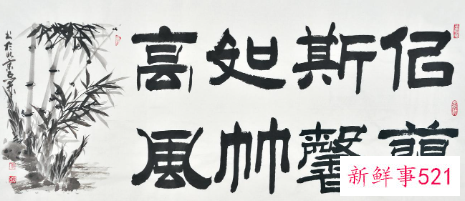 佀蘭
斯馨
如竹
高風
新鲜事521